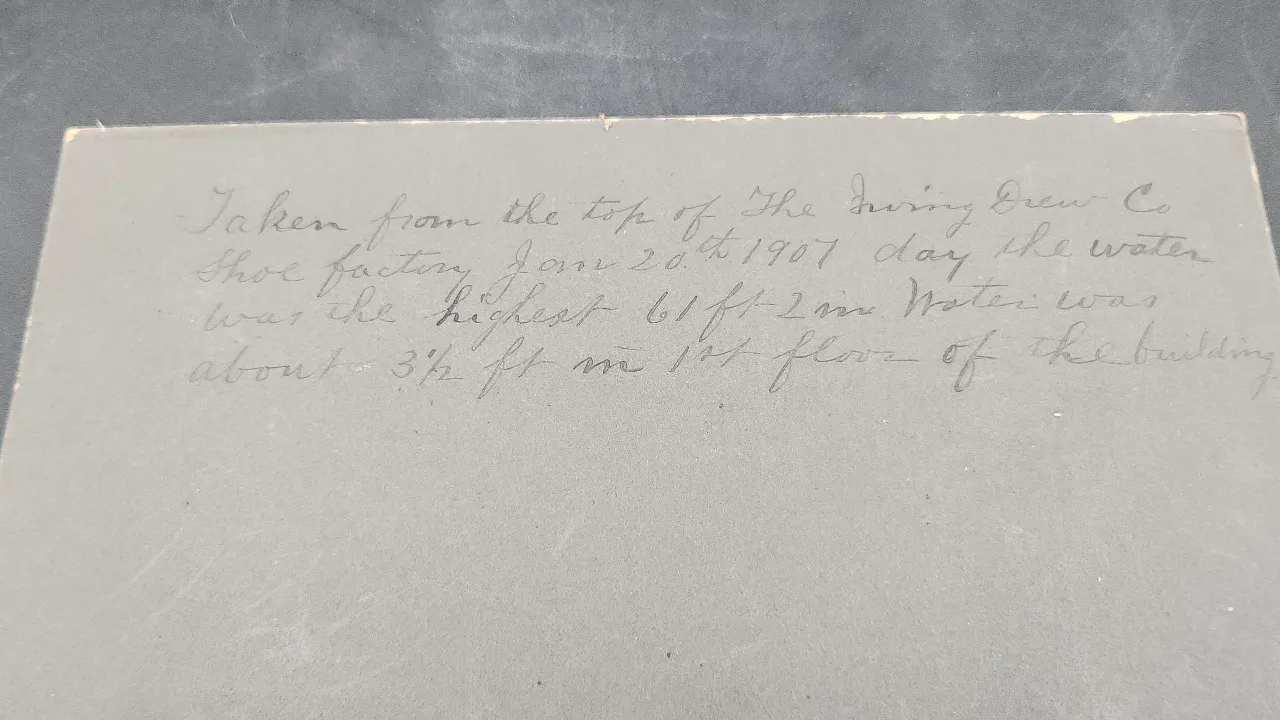 Taken from the top of The Irving Drew Co
Shoe factory Jan 20th 1907 day the water
was the highest 61 ft 2 in Water was
about 3 1/2 ft in 1st floor of the building